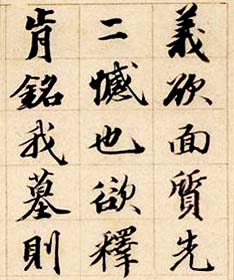 義欲面質先
二憾也欲釋
肯銘我墓則